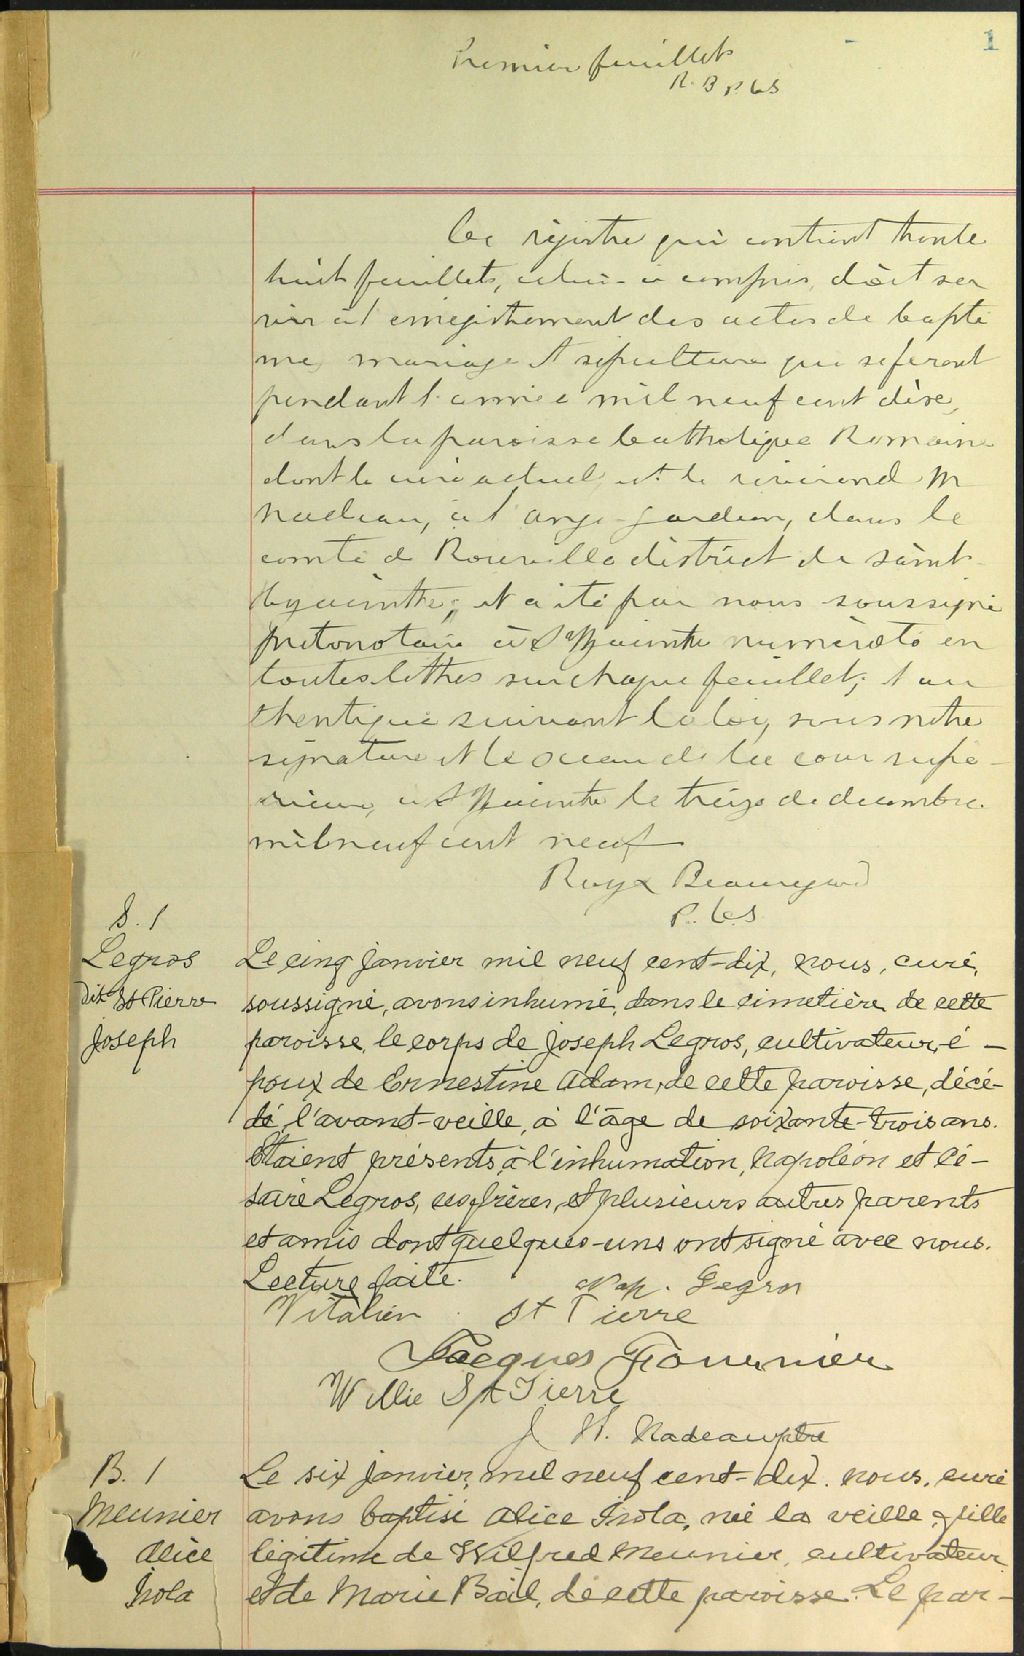 1
Premier feuillet
R. B P. C S
Ce registre qui contient trente
huit feuillets, celui-ci compris, doit ser
vir à l'enregistrement des actes de baptê
me, mariage et sépulture qui se feront
pendant l'année mil neuf cent dix,
dans la paroisse Catholique Romaine
dont le curé actuel est le révérend M
Nadeau, à l'ange-gardien, dans le
comté de Rouville district de saint
Hyacinthe, et a été par nous soussigné
protonotaire à St Hyacinthe numéroté en
toutes lettres sur chaque feuillet, et au
thentiqué suivant la loi, sous notre
signature et le sceau de la cour supé-
rieure, à St Hyacinthe le treize de decembre
mil neuf cent neuf
Roy & Beauregard
P. C. S.
S. 1
Legros
dit St Pierre
Joseph
Le cinq janvier mil neuf cent-dix, nous, curé,
soussigné, avons inhumé, dans le cimetière de cette
paroisse, le corps de Joseph Legros, cultivateur, é-
poux de Ernestine Adam, de cette paroisse, décé-
dé, l'avant-veille, à l'âge de soixante-trois ans.
Etaient présents, à l'inhumation, Napoléon et Cé-
saire Legros, ses frères, et plusieurs autres parents
et amis dont quelques-uns ont signé avec nous.
Lecture faite. Nap. Legros
Vitalien St Pierre
Jacques Fournier
Willie St Pierre
J. N. Nadeau ptre
B. 1
Meunier
Alice
Isola
Le six janvier, mil neuf cent-dix. nous, curé
avons baptisé Alice Isola, née la veille, fille
légitime de Wilfred Meunier, cultivateur
et de Marie Bail, de cette paroisse. Le par-